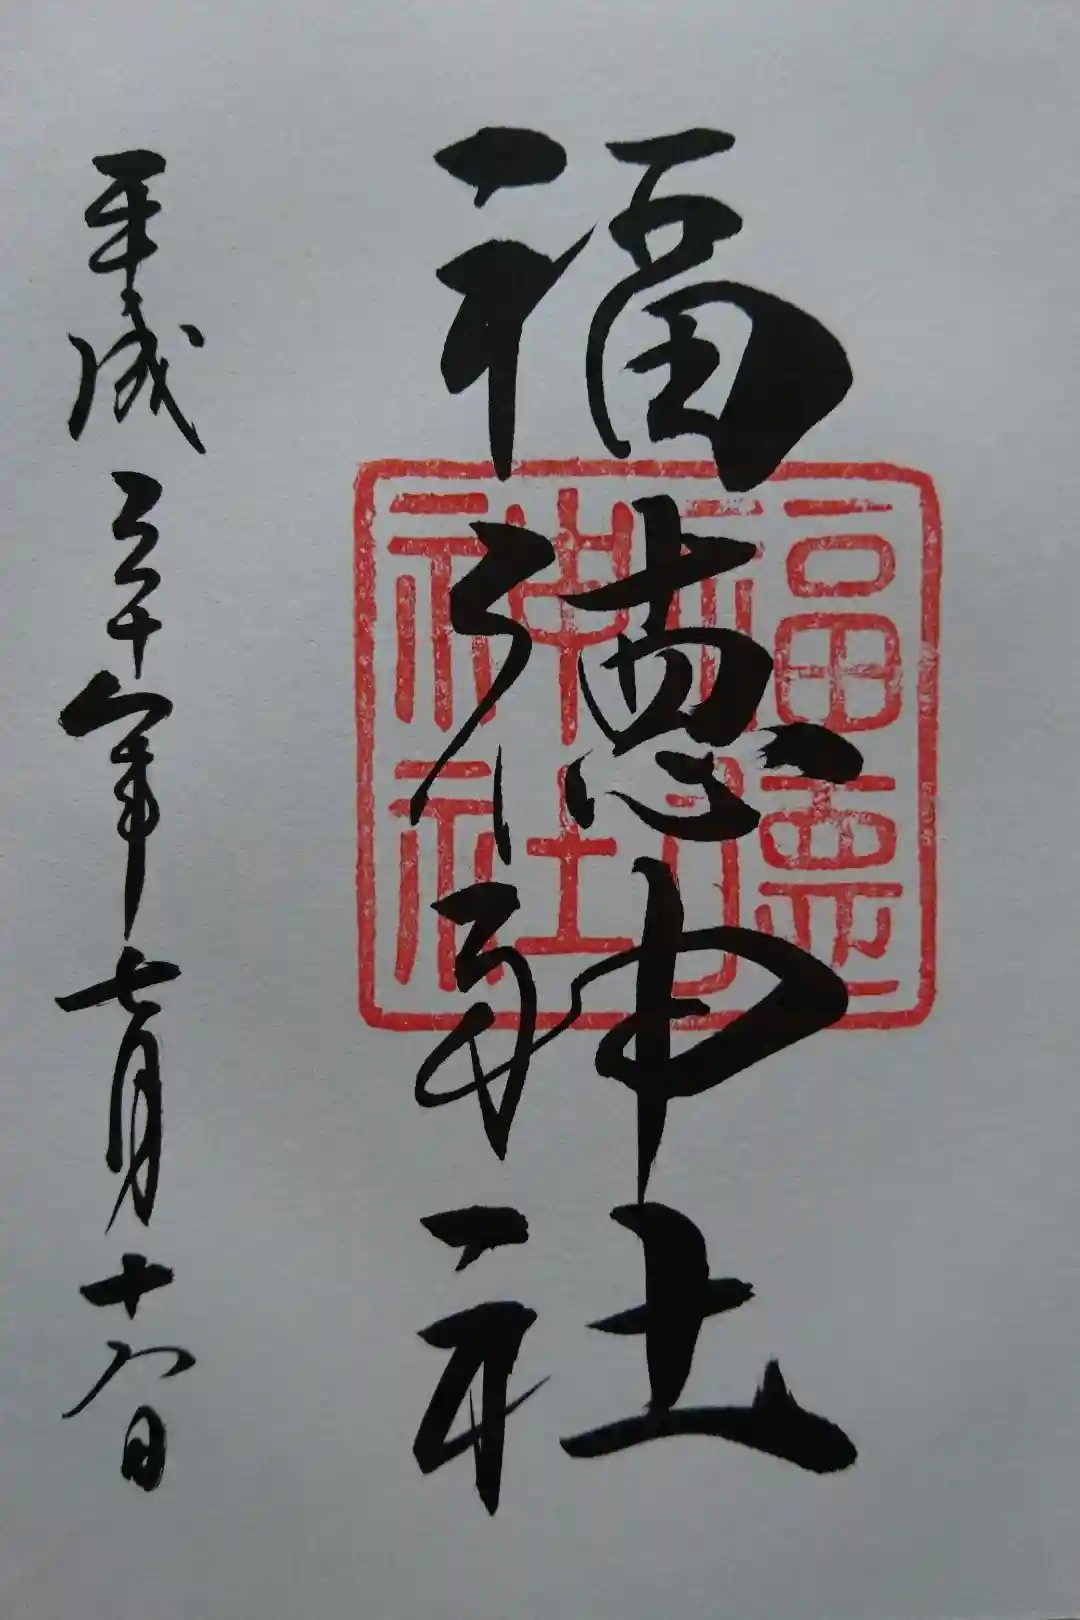 福徳神社
福徳
神社
平成三十年七月十八日